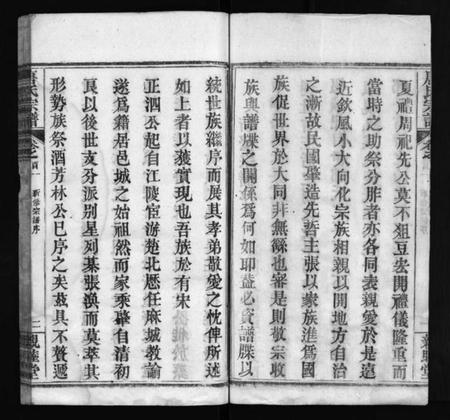 夏禮周祀先公莫不狙豆宏開禮儀隆重而
當時之助祭分胙者亦各同表親愛於是遠
近欽風小大向化宗族相親以開地方自治
之漸故民國肇造先哲主張以家族進爲國
族促世界於大同非無繇也審是則敬宗收
族與譜牒之關係爲何如耶蓋必資譜牒以
統世族繼序而展其孝弟敬愛之忱俾所述
如上者以獲實現也吾族於有宋
正泗公起自江陵宦游楚北歷任麻城教諭
遂爲籍居邑城之始祖然而家乘肇自清初
良以後世支分派別星列棊張渙而莫萃其
形勢族祭酒芳林公已序之矣茲具不贅邇
氏宗譜
卷之首一
新修宗譜序
二
親睦堂